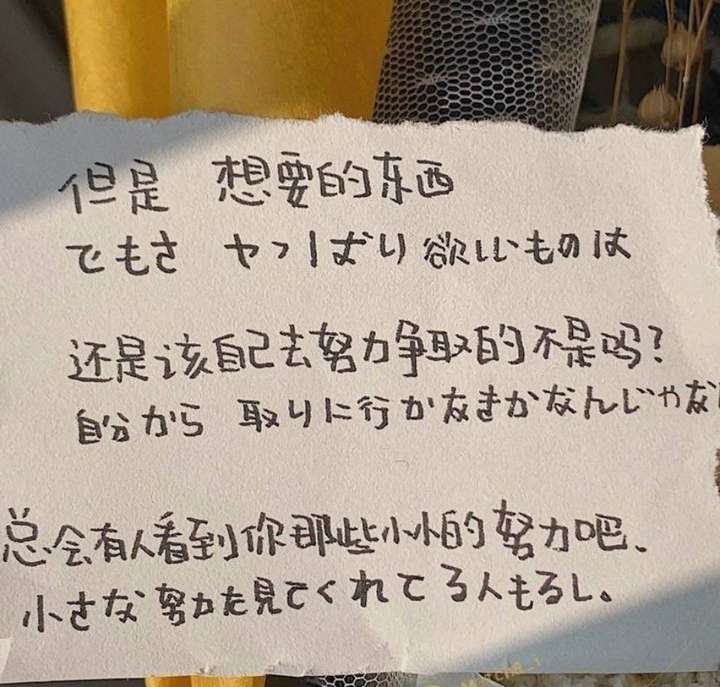 但是 想要的东西
でもさ ヤっぱり欲しいものは
还是该自己去努力争取的不是吗?
自分から 取りに行かなきかなんじゃな
总会有人看到你那些小小的努力吧、
小さな努力を見てくれてろ人もるし。